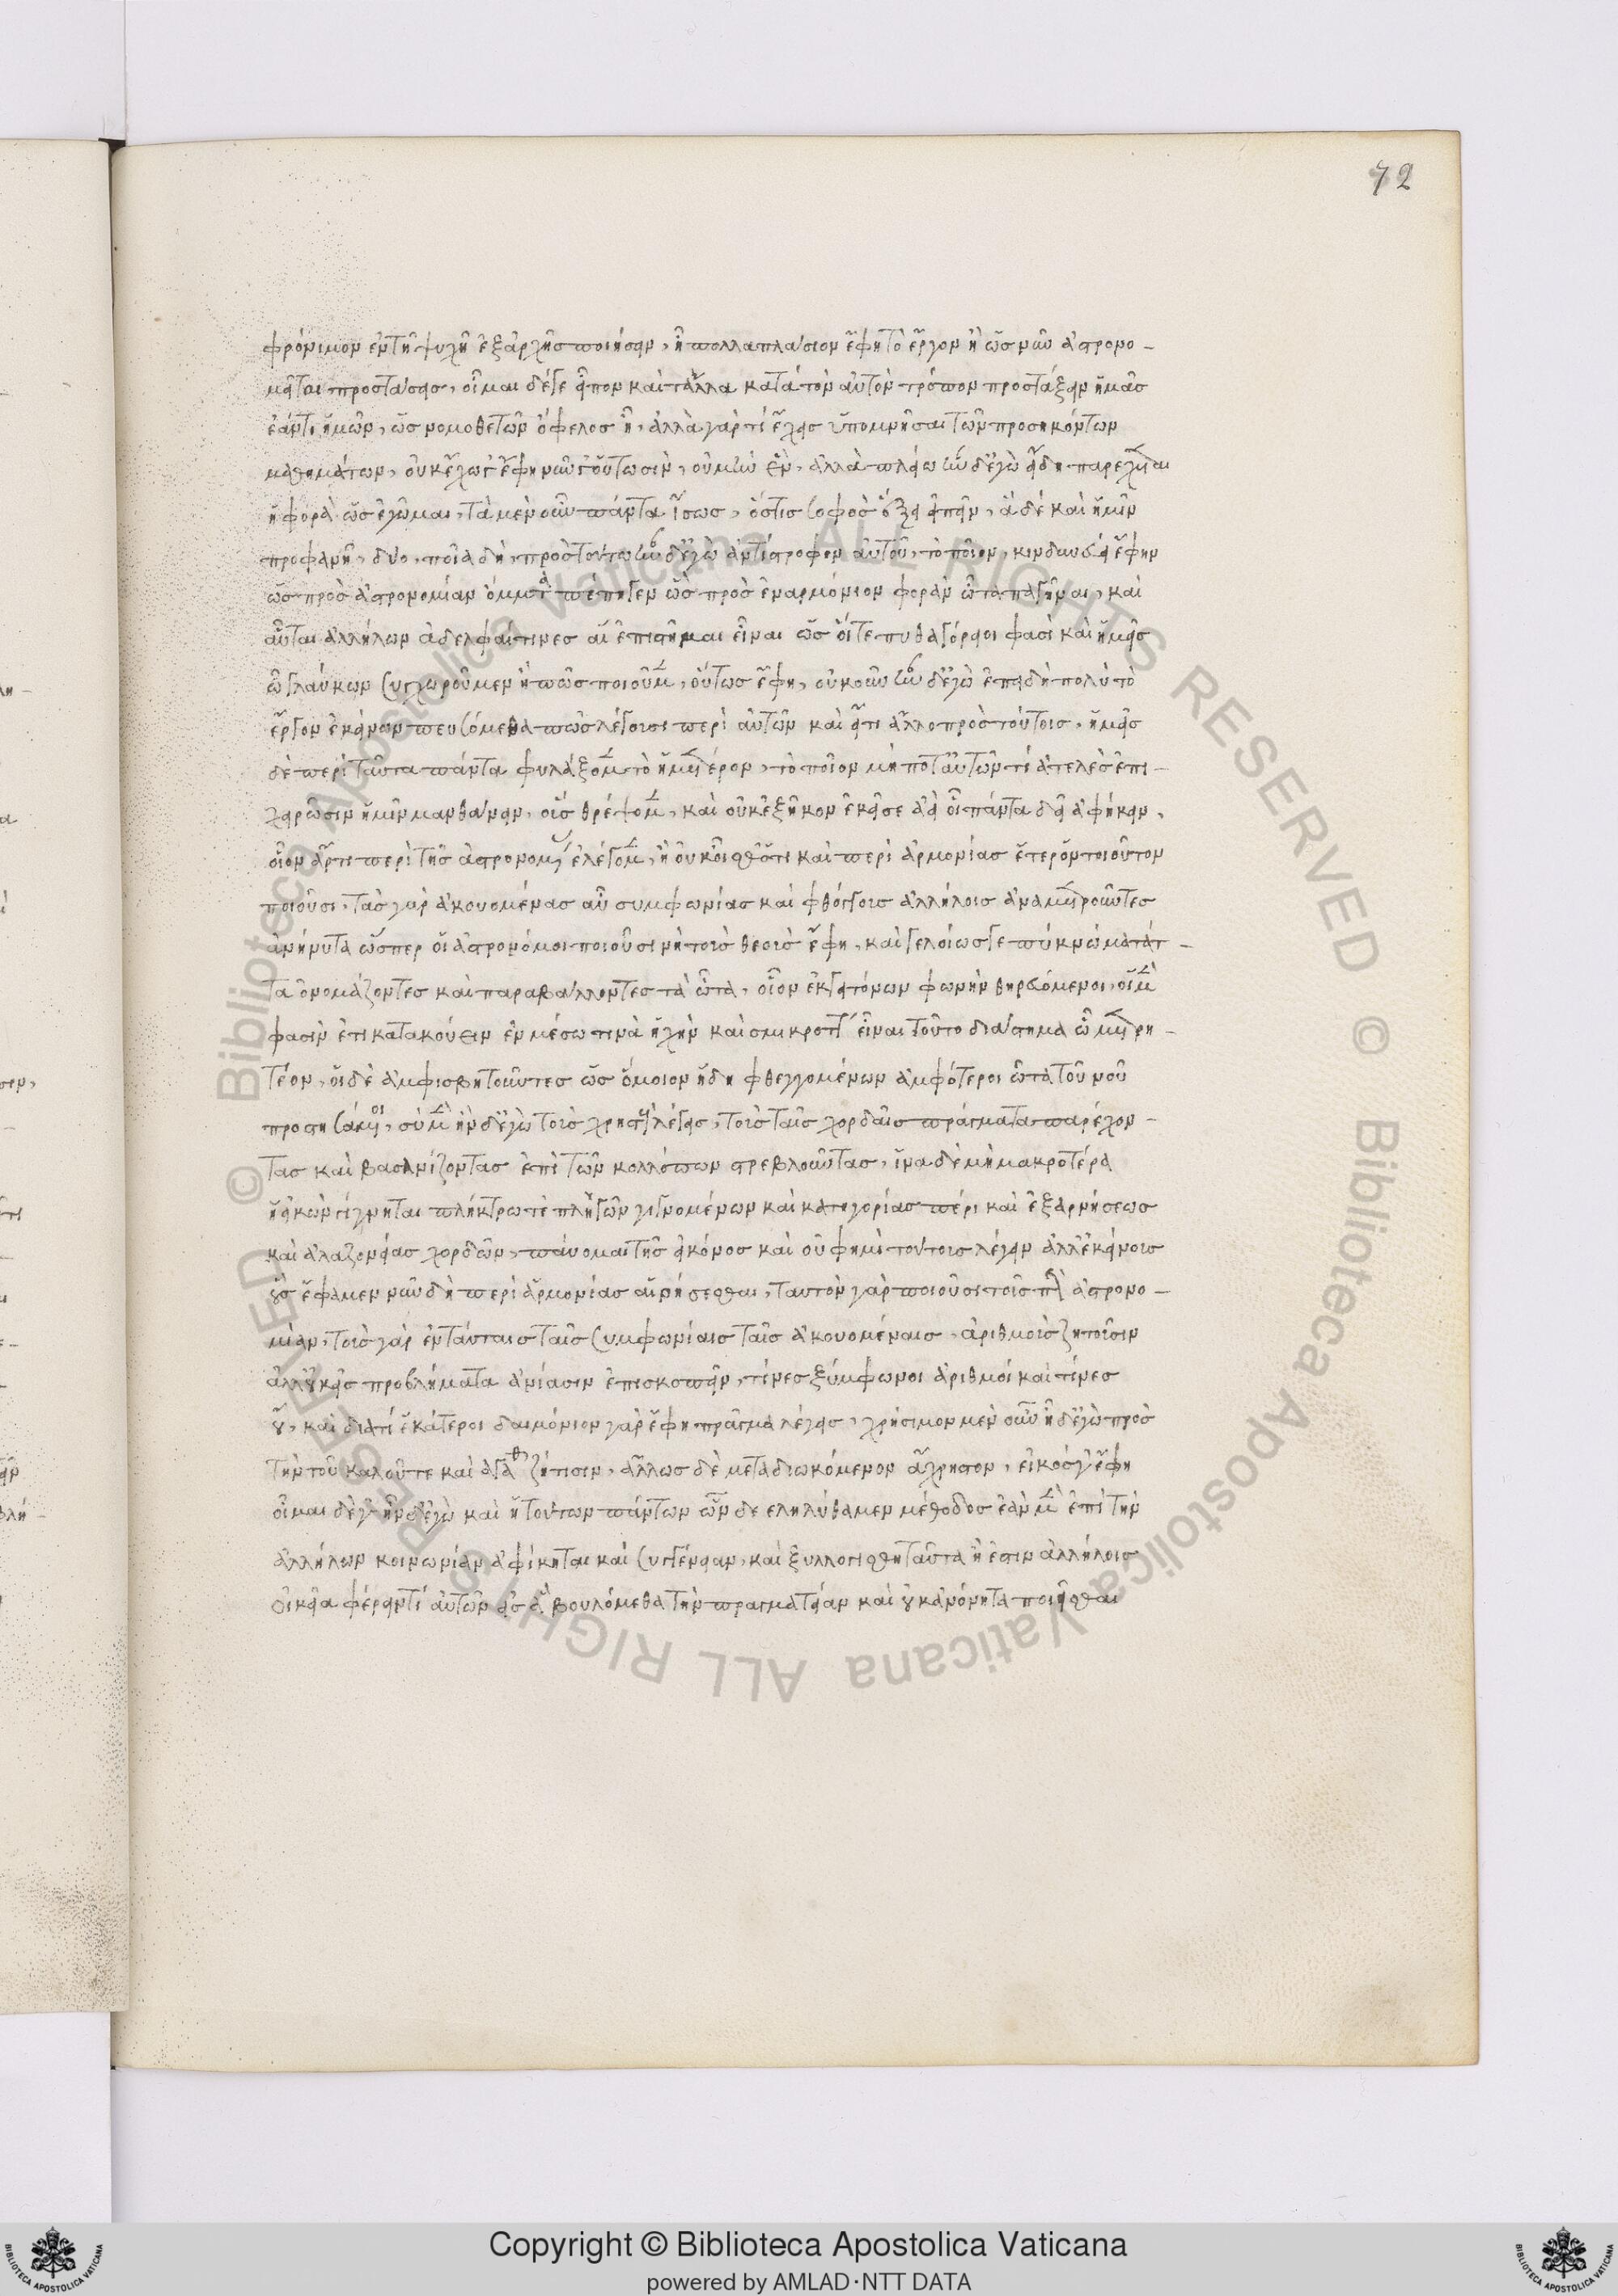 72
φρόνιμον ἐν τῆ ψυχῆ ἐξ ἀρχῆς ποιήσειν, ἦ πολλαπλάσιον ἔφη τὸ ἔργον ἢ ὡς νῦν ἀστρονο-
μεῖται προστάσεις, οἶμαι δέ γε εἶπον καὶ τἄλλα κατὰ τὸν αὐτὸν τρόπον προστάξειν ἡμᾶς
ἐάν τι ἡμῶν, ὡς νομοθετῶν ὄφελος ἦ, ἀλλὰ γάρ τί ἔχεις ὑπομνῆσαι τῶν προσηκόντων
μαθημάτων, οὐκ ἔχω γ' ἔφη νῦν γ' οὑτωσὶν, οὐ μὴν ἓν, ἀλλὰ πλείω ἦν δ' ἐγὼ εἴδη παρέχεται
ἡ φορὰ ὡς ἐγὦμαι, τὰ μὲν οὖν πάντα ἴσως, ὅστις σοφὸς ἕξει εἰπεῖν, ἃ δὲ καὶ ἡμῖν
προφανῆ, δύο, ποῖα δὴ, πρὸς τούτω ἦν δ' ἐγὼ ἀντίστροφον αὐτοῦ, τὸ ποῖον, κινδυνεύει ἔφην
ὡς πρὸς ἀστρονομίαν ὄμματα πέπηγεν ὣς πρὸς ἐναρμόνιον φορὰν ὦτα παγῆναι, καὶ
αὗται ἀλλήλων ἀδελφαί τινες αἱ ἐπιστῆμαι εἶναι ὡς οἵ τε πυθαγόρειοι φασὶ καὶ ἡμεῖς
ὦ γλαύκων συγχωροῦμεν ἢ πῶς ποιοῦμεν, οὕτως ἔφη, οὐκοῦν ἦν δ' ἐγὼ ἐπειδὴ πολὺ τὸ
ἔργον ἐκείνων πευσόμεθα πῶς λέγουσι περὶ αὐτῶν καὶ εἴ τι ἄλλο πρὸς τούτοις, ἡμεῖς
δὲ περὶ ταῦτα πάντα φυλάξομεν τὸ ἡμέτερον, τὸ ποῖον μή ποτ' αὐτῶν τι ἀτελὲς ἐπι-
χειρῶσιν ἡμῖν μανθάνειν, οὓς θρέψομεν, καὶ οὐκ ἐξῆκον ἐκεῖσε ἀεὶ οἷ πάντα δεῖ ἀφήκειν,
οἷον ἄρτι περὶ τῆς ἀστρονομίας ἐλέγομεν, ἢ οὐκ οἶσθ' ὅτι καὶ περὶ ἁρμονίας ἕτερον τοιοῦτον
ποιοῦσι, τὰς γὰρ ἀκουομένας αὖ συμφωνίας καὶ φθόγγους ἀλλήλοις ἀναμετροῦντες
ἀνήνυτα ὥσπερ οἱ ἀστρονόμοι ποιοῦσι νὴ τοὺς θεοὺς ἔφη, καὶ γελοίως γε πυκνώματ' ἄτ-
τα ὀνομάζοντες καὶ παραβάλλοντες τὰ ὦτα, οἷον ἐκ γειτόνων φωνὴν θηρευόμενοι, οἱ μὲν
φασὶν ἔτι κατακούειν ἐν μέσω τινὰ ἠχὴν καὶ σμικρότατον εἶναι τοῦτο διάστημα ὧ μετρη-
τέον, οἱ δὲ ἀμφισβητοῦντες ὡς ὅμοιον ἤδη φθεγγομένων ἀμφότεροι ὦτα τοῦ νοῦ
προστησάμενοι, σὺ μὲν ἦν δ' ἐγὼ τοὺς χρηστοὺς λέγεις, τοὺς ταῖς χορδαῖς πράγματα παρέχον-
τας καὶ βασανίζοντας ἐπὶ τῶν κολλόπων στρεβλοῦντας, ἵνα δὲ μὴ μακροτέρα
ἡ εἰκὼν γίγνηται πλήκτρω τὲ πληγῶν γιγνομένων καὶ κατηγορίας πέρι καὶ ἐξαρνήσεως
καὶ ἀλαζονείας χορδῶν, παύομαι τῆς εἰκόνος καὶ οὔ φημι τούτους λέγειν ἀλλ' ἐκείνους
οὓς ἔφαμεν νῦν δὴ περὶ ἁρμονίας αἱρήσεσθαι, ταυτὸν γὰρ ποιοῦσι τοῖς περὶ ἀστρονο-
μίαν, τοὺς γὰρ ἐν ταύταις ταῖς συμφωνίαις ταῖς ἀκουομέναις, ἀριθμοὺς ζητοῦσιν
ἀλλ' οὐκ εἰς προβλήματα ἀνίασιν ἐπισκοπεῖν, τίνες ξύμφωνοι ἀριθμοὶ καὶ τίνες
οὔ, καὶ διατί ἑκάτεροι δαιμόνιον γὰρ ἔφη πρᾶγμα λέγεις, χρήσιμον μὲν οὖν ἦ δ' ἐγὼ πρὸς
τὴν τοῦ καλοῦ τε καὶ ἀγαθοῦ ζήτησιν, ἄλλως δὲ μεταδιωκόμενον ἄχρηστον, εἰκός γ' ἔφη
οἶμαι δέ γ' ἦν δ' ἐγὼ καὶ ἡ τούτων πάντων ὧν δε εληλύθαμεν μέθοδος ἐὰν μὲν ἐπὶ τὴν
ἀλλήλων κοινωνίαν ἀφίκηται καὶ συγγένειαν, καὶ ξυλλογισθῆ ταῦτα ἧ ἐστιν ἀλλήλοις
οἰκεῖα φέρειν τί αὐτῶν εἰς ἃ βουλόμεθα τὴν πραγματείαν καὶ οὐκ ἀνόνητα πονεῖσθαι
Copyright © Biblioteca Apostolica Vaticana
powered by AMLAD·NTT DATA